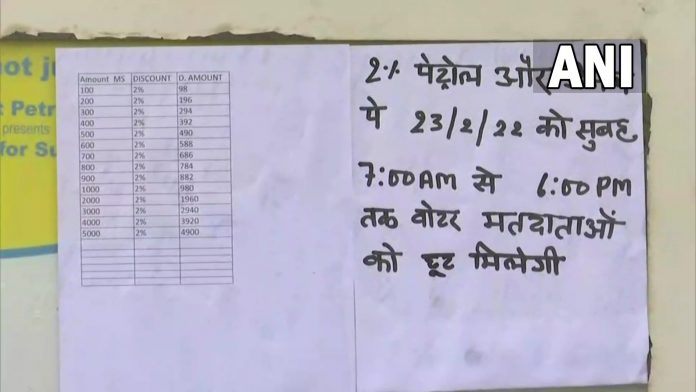 not ju
t Petr
presents
for Su
Amount MS DISCOUNT D. AMOUNT
100 2% 98
200 2% 196
300 2% 294
400 2% 392
500 2% 490
600 2% 588
700 2% 686
800 2% 784
900 2% 882
1000 2% 980
2000 2% 1960
3000 2% 2940
4000 2% 3920
5000 2% 4900
ANI
2% पेट्रोल और
पे 23/2/22 को सुबह
7:00AM से 6:00PM
तक वोटर मतदाताओं
को छूट मिलेगी